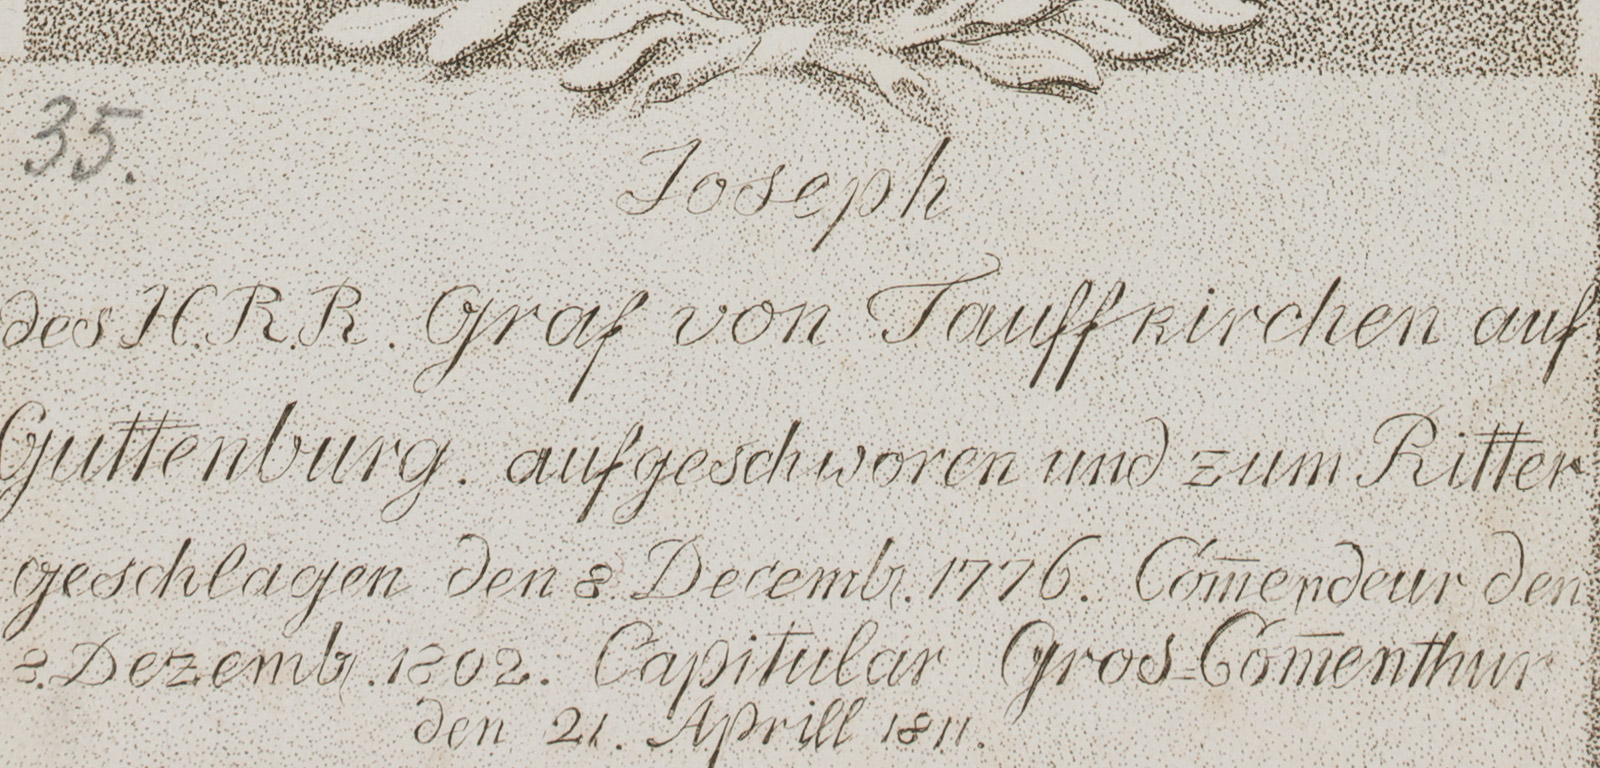 35.
Joseph
des H.R.R. Graf von Tauffkirchen auf
Guttenburg. aufgeschworen und zum Ritter
geschlagen den 8. Decembr. 1776. Com̄endeur den
8. Dezembr. 1802. Capitular Gros-Com̄enthur
den 21. Aprill 1811.